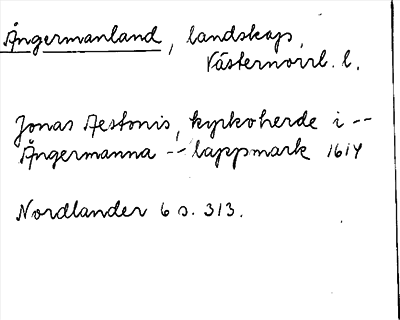 Ångermanland, landskap,
Västernorrl. l.
Jonas Aestonis, kyrkoherde i --
Ångermanna -- lappmark 1614
Nordlander 6 s. 313.